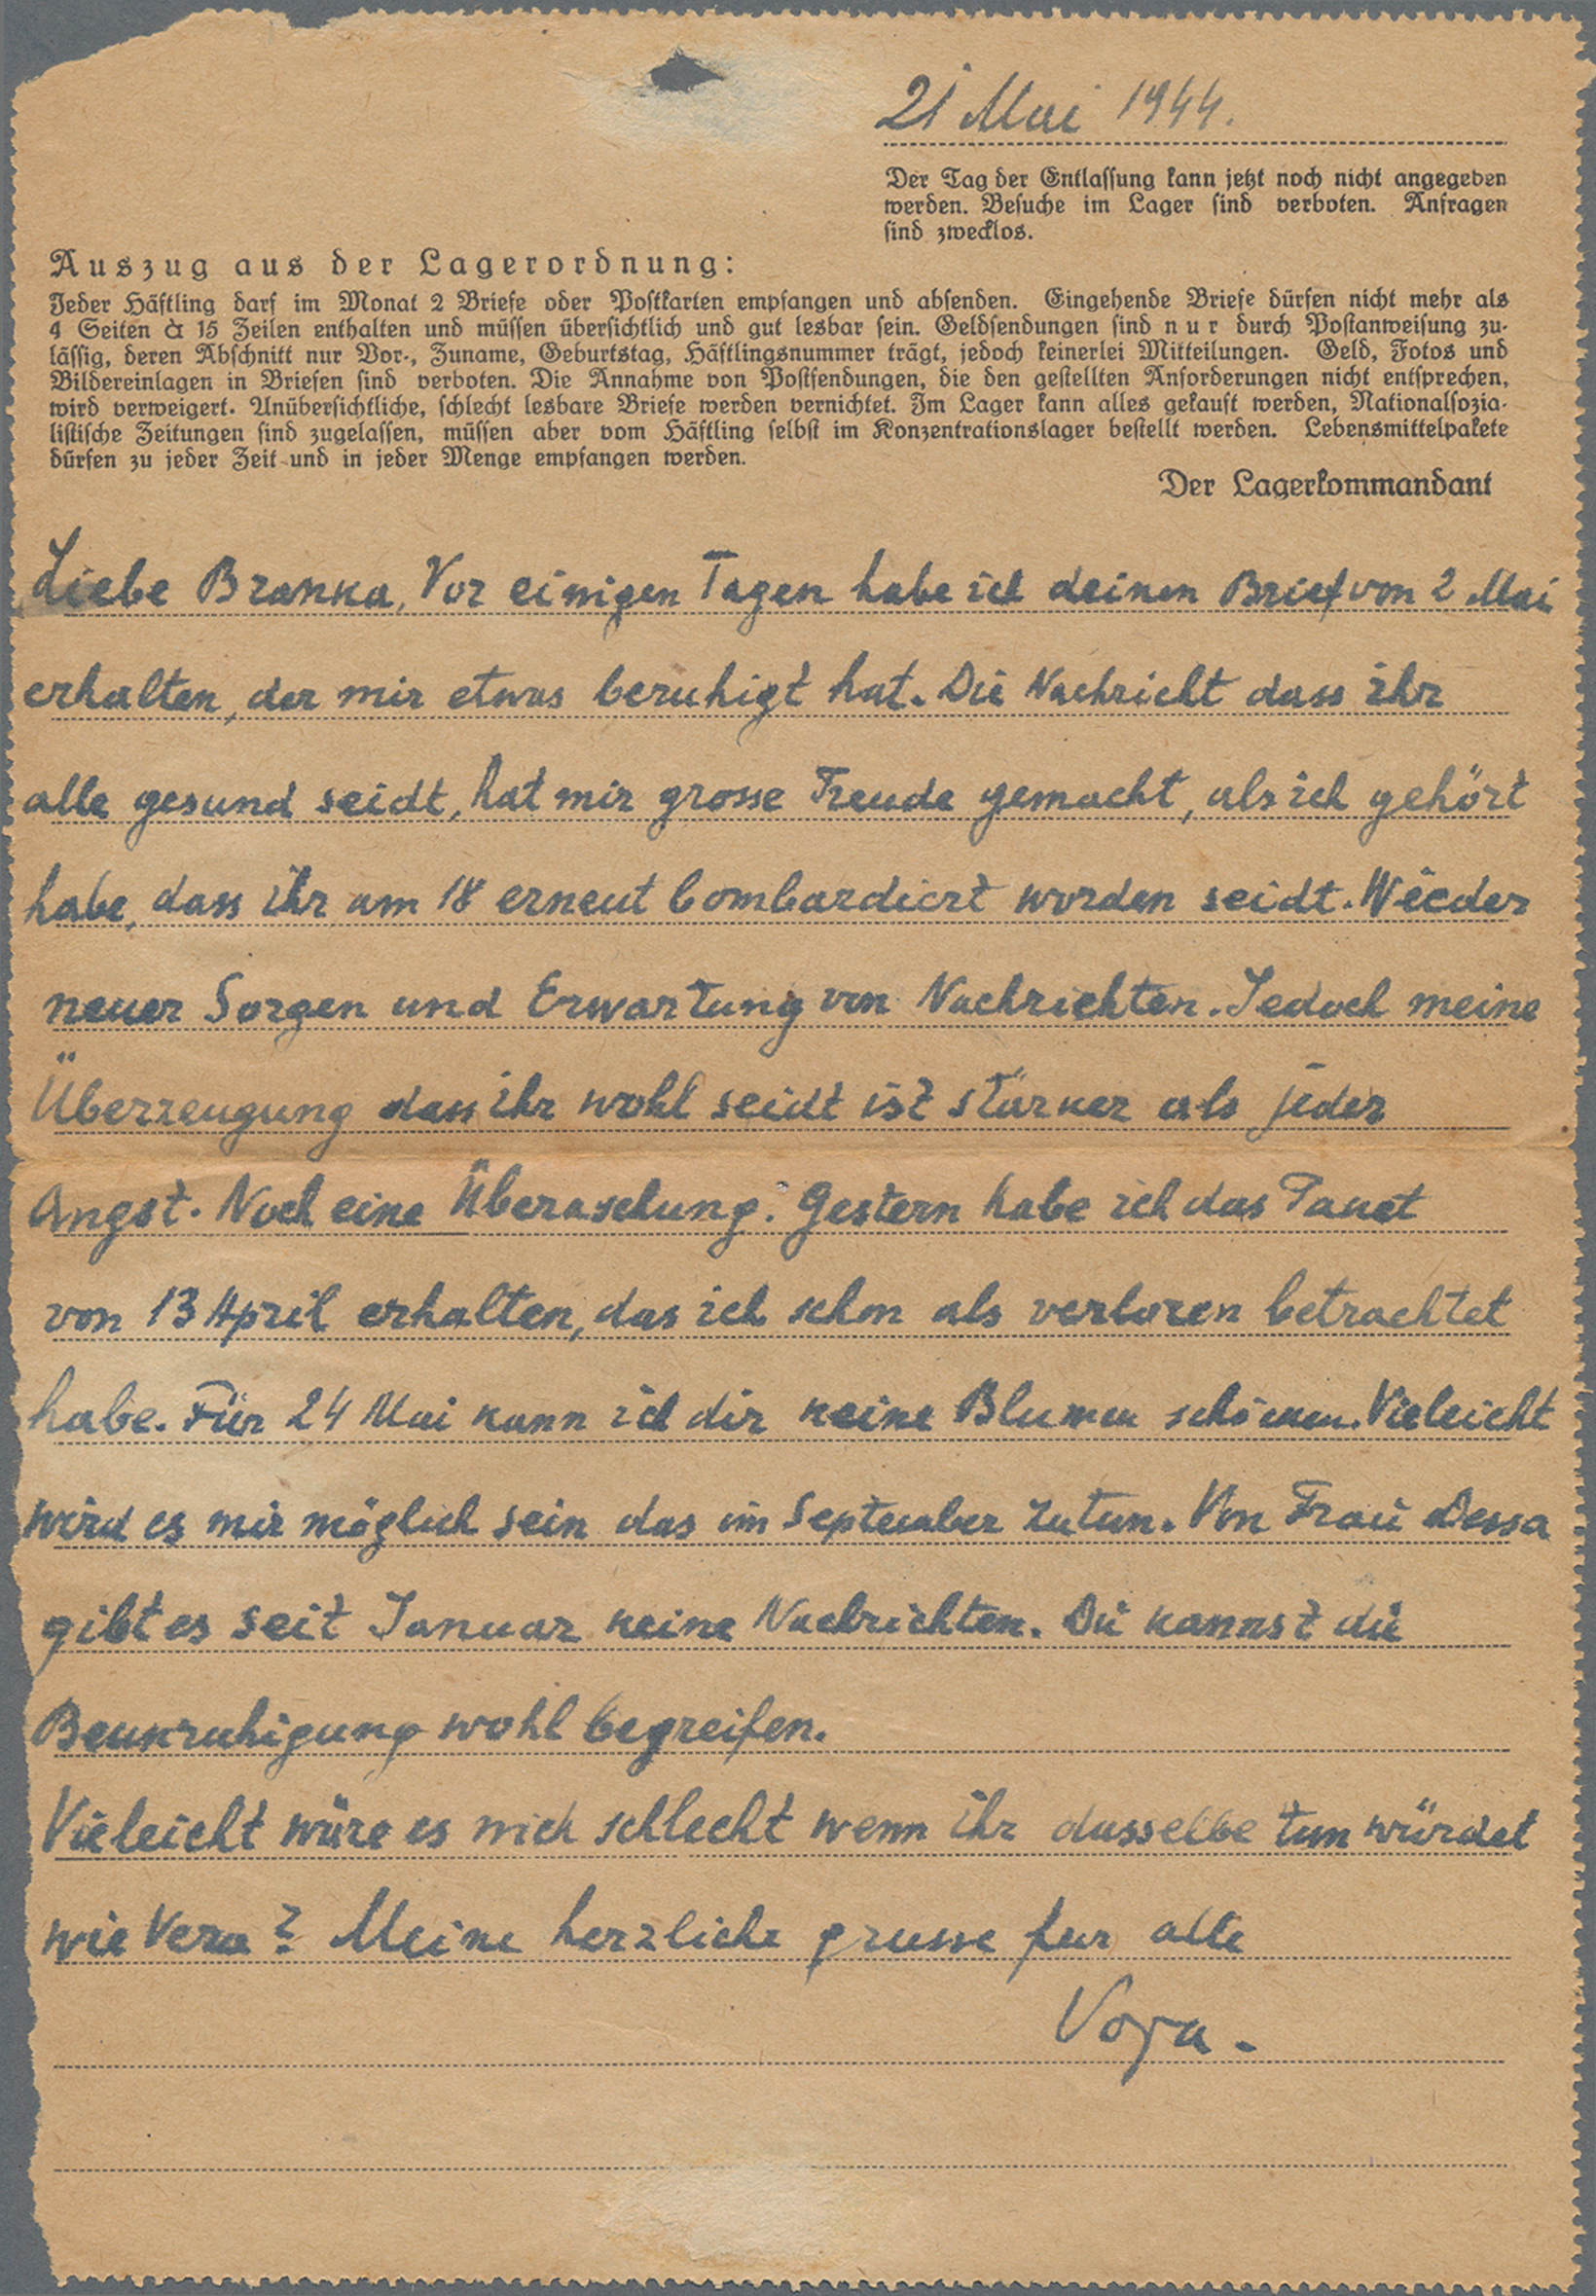 21 Mai 1944.
Der Tag der Entlassung kann jetzt noch nicht angegeben
werden. Besuche im Lager sind verboten. Anfragen
sind zwecklos.
Auszug aus der Lagerordnung:
Jeder Häftling darf im Monat 2 Briefe oder Postkarten empfangen und absenden. Eingehende Briefe dürfen nicht mehr als
4 Seiten à 15 Zeilen enthalten und müssen übersichtlich und gut lesbar sein. Geldsendungen sind nur durch Postanweisung zu-
lässig, deren Abschnitt nur Vor-, Zuname, Geburtstag, Häftlingsnummer trägt, jedoch keinerlei Mitteilungen. Geld, Fotos und
Bildereinlagen in Briefen sind verboten. Die Annahme von Postsendungen, die den gestellten Anforderungen nicht entsprechen,
wird verweigert. Unübersichtliche, schlecht lesbare Briefe werden vernichtet. Im Lager kann alles gekauft werden, Nationalsozia-
listische Zeitungen sind zugelassen, müssen aber vom Häftling selbst im Konzentrationslager bestellt werden. Lebensmittelpakete
dürfen zu jeder Zeit und in jeder Menge empfangen werden.
Der Lagerkommandant
Liebe Branka, Vor einigen Tagen habe ich deinen Brief von 2 Mai
erhalten, der mir etwas beruhigt hat. Die Nachricht dass ihr
alle gesund seidt, hat mir grosse Freude gemacht, als ich gehört
habe, dass ihr am 18 erneut bombardiert worden seidt. Wieder
neuer Sorgen und Erwartung von Nachrichten. Jedoch meine
Überzeugung dass ihr wohl seidt ist stärker als jeder
Angst. Noch eine Überaschung. Gestern habe ich das Paket
von 13 April erhalten, das ich schon als verloren betrachtet
habe. Für 24 Mai kann ich dir keine Blumen schicken. Vieleicht
wird es mir möglich sein das im September zutun. Von Frau Dessa
gibt es seit Januar keine Nachrichten. Du kannst die
Beunruhigung wohl begreifen.
Vieleicht wäre es nich schlecht wenn ihr dasselbe tun würdet
wie Vera? Meine herzliche grusse fur alle
Voya.